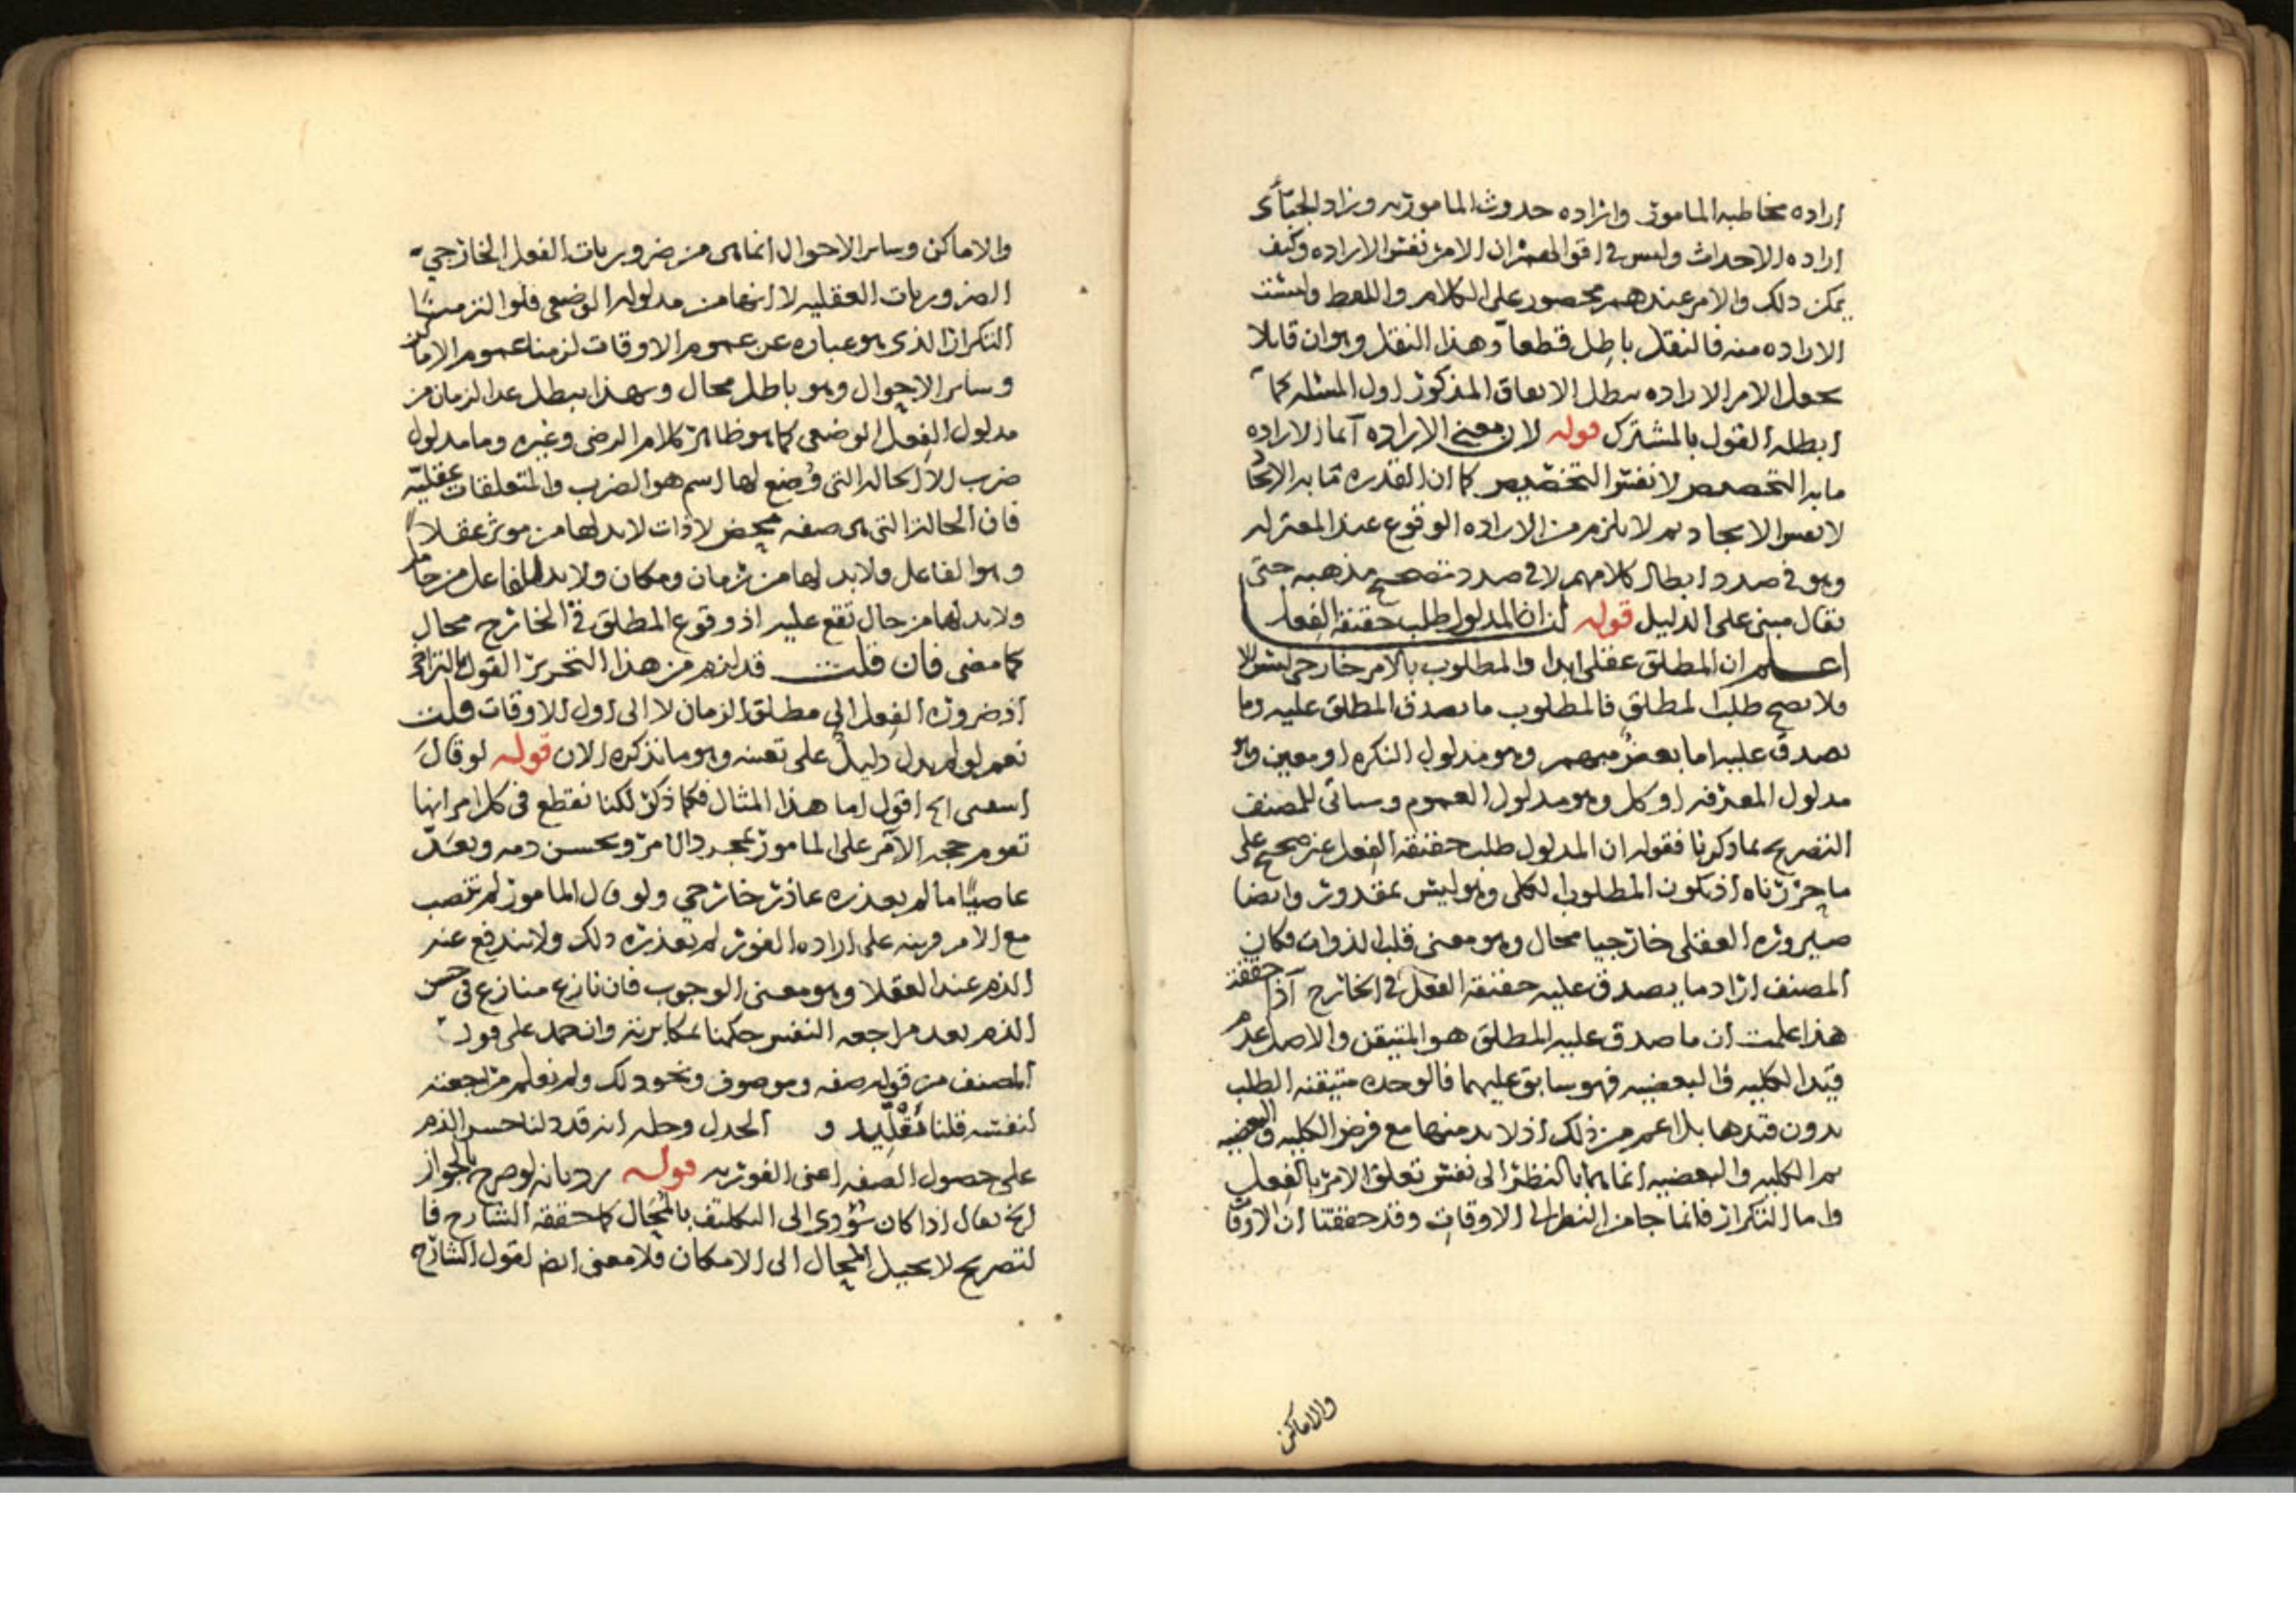 اراده مخاطبه المامور واراده حدوث المامور به وزاد الجبائى
اراده الاحداث وليس فى اقوال المعتزله ان الامر نفس الاراده وكيف
يمكن ذلك والامر عندهم محصور على الكلام واللفظ وليست
الاراده منه فالنقل باطل قطعا وهذا النقل وهو ان قايلا
يجعل الامر الاراده يبطل الاتفاق المذكور اول المسئله كما
ابطله القول بالمشترك قوله لان معنى الاراده آه انما الاراده
ما به التخصيص لا نفس التخصيص كما ان القدره ما به الايجاد
لا نفس الايجاد ثم لا يلزم من الاراده الوقوع عند المعتزله
وهو فى صدد ابطال كلامهم لا فى صدد تصحيح مذهبه حتى
يقال مبنى على الدليل قوله لنا ان المدلول طلب حقيقه الفعل
اعلم ان المطلق عقلى ابدا والمطلوب بالامر خارجى ليس الا
ولا يصح طلب المطلق فالمطلوب ما يصدق المطلق عليه وما
يصدق عليه اما بعض مبهم وهو مدلول النكره او معين وهو
مدلول المعرفه او كل وهو مدلول العموم وسياتى للمصنف
التصريح بما ذكرنا فقوله ان المدلول طلب حقيقه الفعل غير صحيح على
ما حررناه اذ يكون المطلوب الكلى وهو ليس بمقدور وايضا
صيروره العقلى خارجيا محال وهو معنى قلب الذوات فكان
المصنف اراد ما يصدق عليه حقيقه الفعل فى الخارج اذا حققت
هذا علمت ان ما صدق عليه المطلق هو المتيقن والاصل عدم
قيد الكليه والبعضيه فهو سابق عليهما فالوحده متيقنه الطلب
بدون قيدها بل اعم من ذلك اذ لا بد منها مع فرض الكليه والبعضيه
ثم الكليه والبعضيه انما هما بالنظر الى نفس تعلق الامر بالفعل
واما التكرار فانما جا من النظر الى الاوقات وقد حققنا ان الاوقات
والاماكن
والاماكن وساير الاحوال انما هى من ضروريات الفعل الخارجى
الضروريات العقليه لا انها من مدلوله الوضعى فلو التزمنا
التكرار الذى هو عباره عن عموم الاوقات لزمنا عموم الاماكن
وساير الاحوال وهو باطل محال وبهذا يبطل عد الزمان من
مدلول الفعل الوضعى كما هو ظاهر كلام الرضى وغيره وما مدلول
ضرب الا الحاله التى وُضع لها اسم هو الضرب والمتعلقات عقليّه
فان الحاله التى هى صفه محض لا ذات لا بد لها من موثر عقلاً
وهو الفاعل ولا بد لها من زمان ومكان ولا بد للفاعل من حال
ولا بد لها من حال تقع عليه اذ وقوع المطلق فى الخارج محال
كما مضى فان قلت قد لزم من هذا التحرير القول بالتراخى
اذ ضروره الفعل الى مطلق الزمان لا الى اول الاوقات قلت
نعم لو لم يدل دليل على تعينه وهو ما نذكره الان قوله لو قال
اسقنى الخ اقول اما هذا المثال فكما ذكر لكنا نقطع فى كل امر انها
تقوم حجه الآمر على المامور بمجرد الامر ويحسن ذمه ويعدّ
عاصيًا ما لم يعذره عاذر خارجى ولو قال المامور لم تنصب
مع الامر قرينه على اراده الفور لم يعذره ذلك ولا يندفع عنه
الذم عند العقلا وهو معنى الوجوب فان نازع منازع فى حسن
الذم بعد مراجعه النفس حكمنا بمكابرته وان حمد على قول
المصنف من قوله صفه وموصوف ونحو ذلك ولم نعلم مراجعته
لنفسه قلنا تقليد و الجدل وحله انه قد دلنا حسن الذم
على حصول الصفه اعنى الفوريه قوله رد بانه لو صرح بالجواز
الخ يقال اذا كان يؤدى الى التكليف بالمحال كما حققه الشارح فا
لتصريح لا يحيل المحال الى الامكان فلا معنى ايضا لقول الشارح